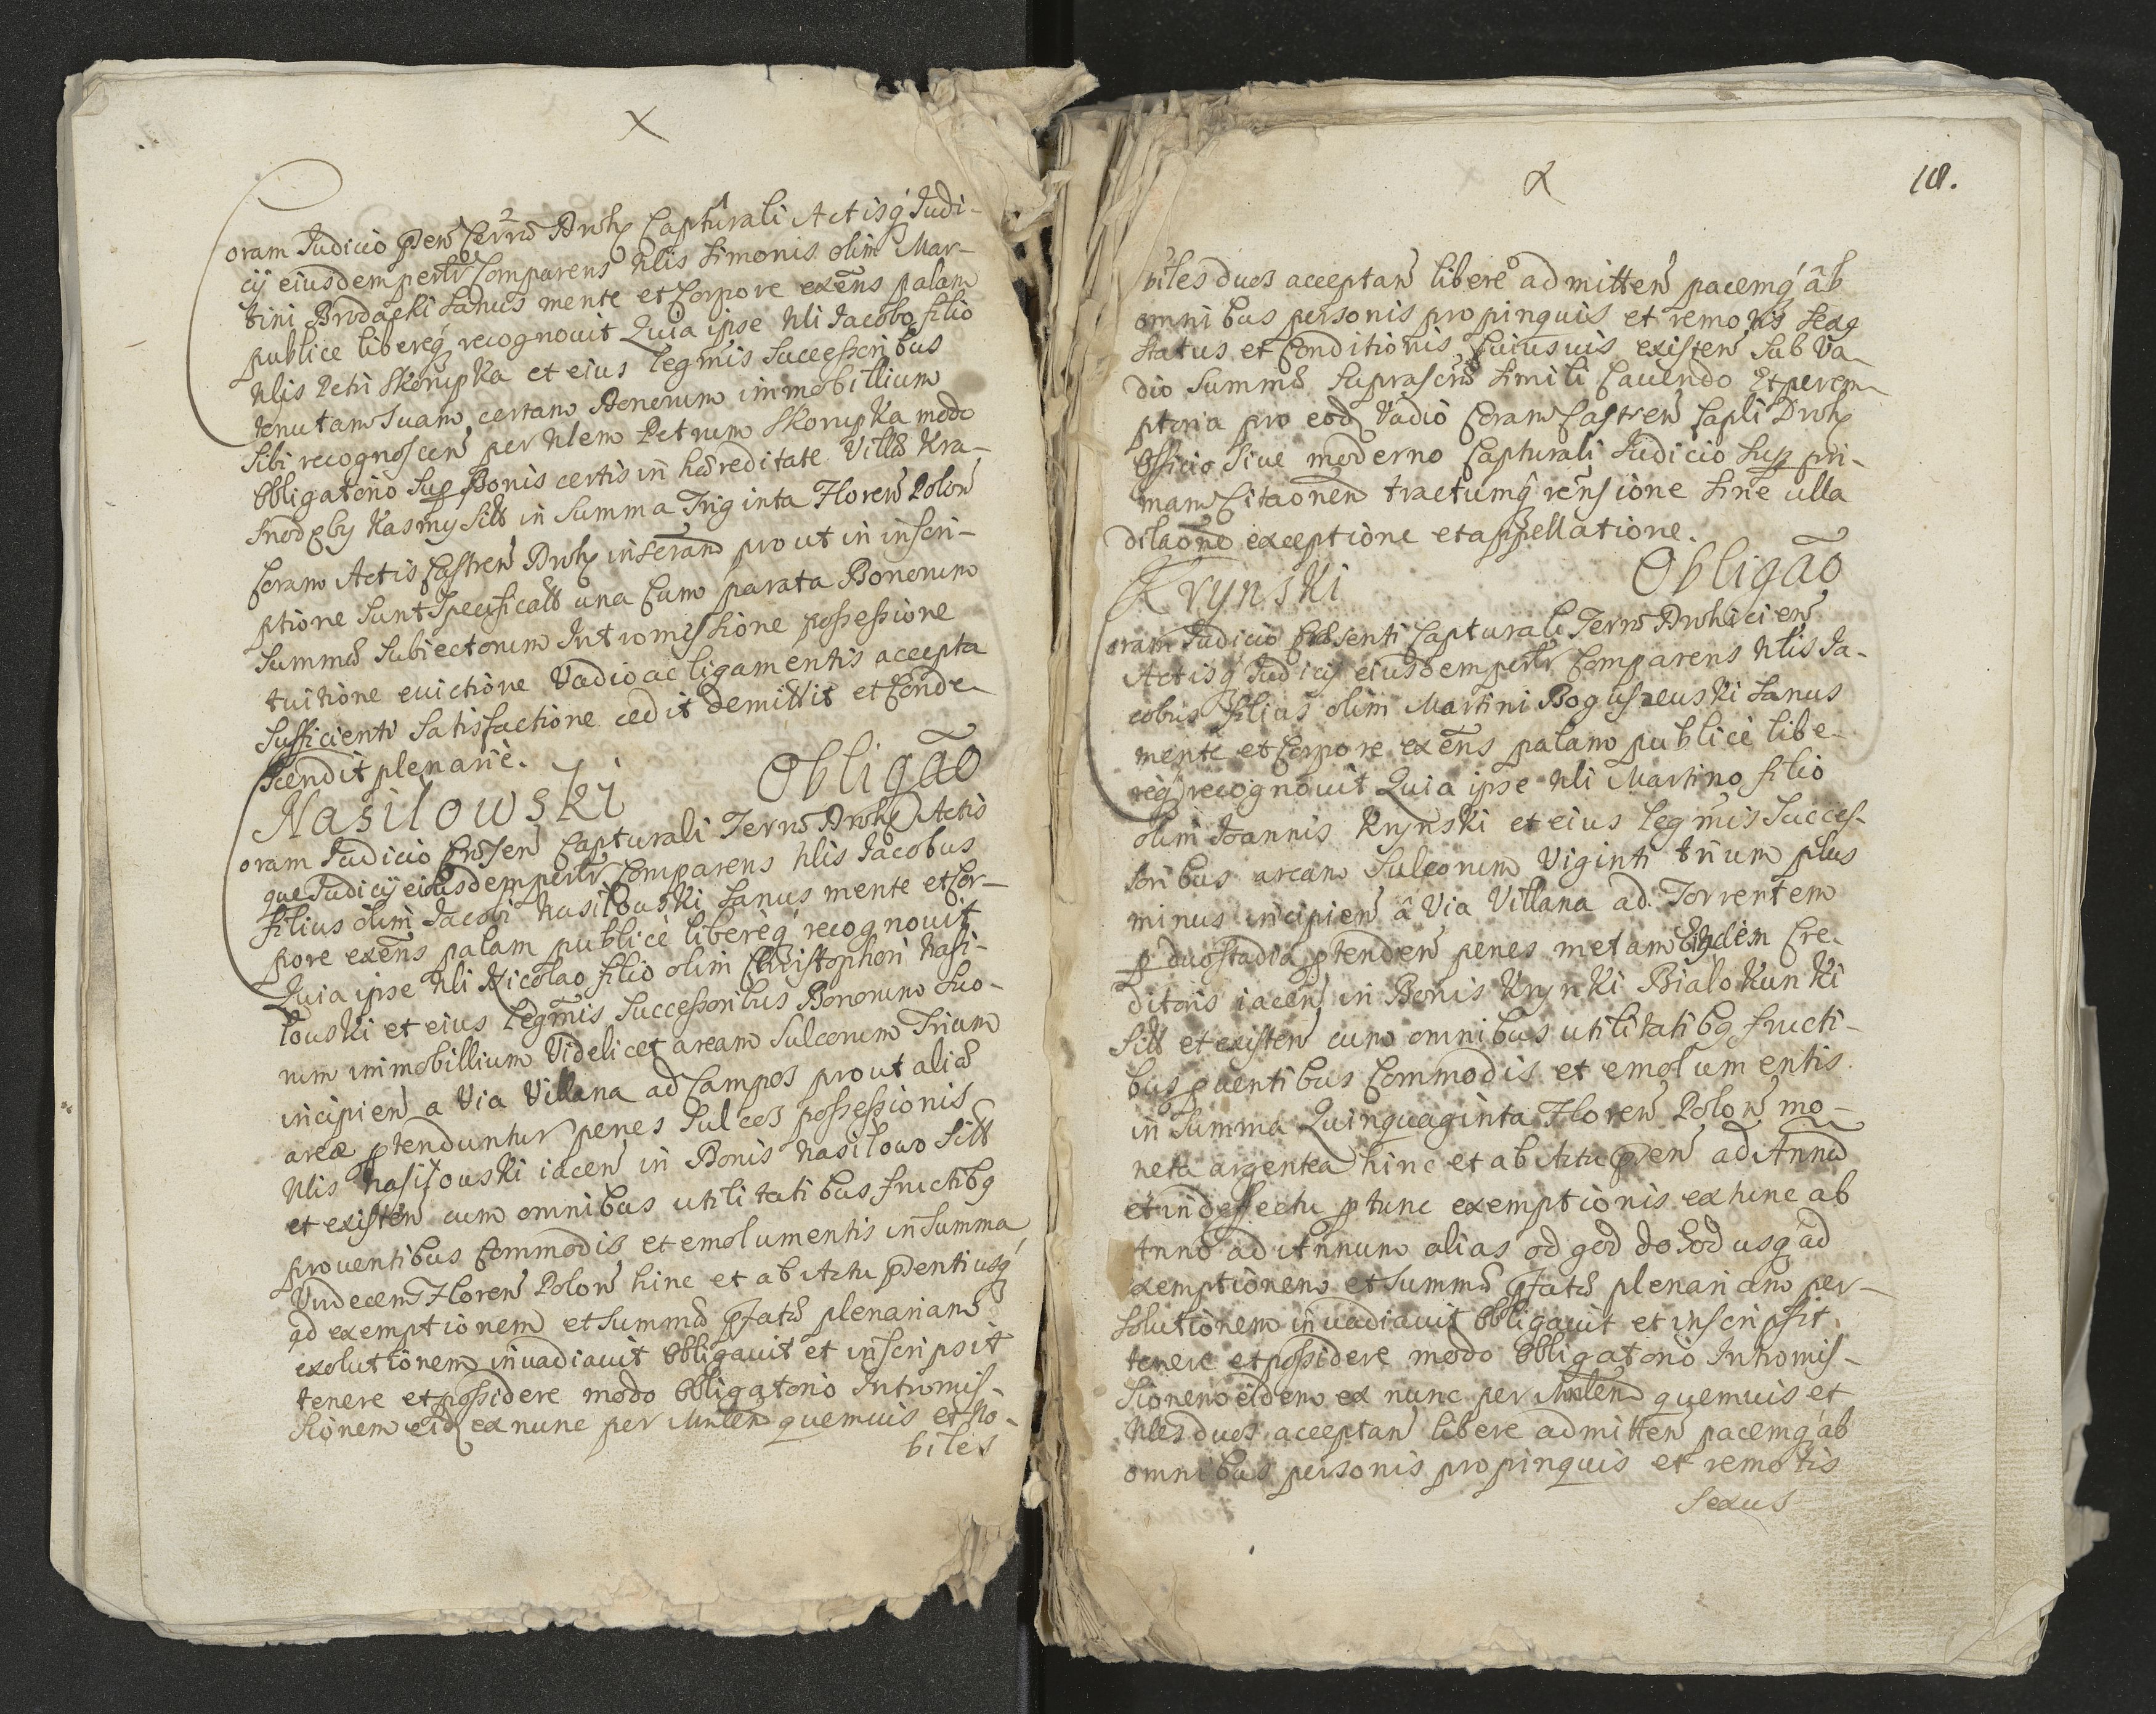 X
Coram Judicio Pñ Terræ Droh Capturali Actisq́ Judi-
cij eiusdem perlr Comparens Nlis Simonis olim Mar-
tini Brodacki Sanus mente et Corpore exens palam
publice libereq́ recognovit Quia ipse Nli Jacobo filio
Nlis Petri Skorupka et eius Legmis Successoribus
tenutam Suam certam Bonorum immobillium
Sibi recognoscen per Nlem Petrum Skorupka modo
Obligatorio Sup Bonis certis in hæreditate Villæ Kra-
Kasmy Sitt in Summa Triginta Floren Polon
Coram Actis Castren Droh inserand prout in inscri-
ptione Sunt Specificatt una Cum parata Bonorum
Summæ Subiectorum Intromissione possessione
tuitione evictione Vadio ac ligamentis accepta
Sufficienti Satisfactione cedit demittit et Conde-
scendit plenarie.
Nasilowski Obligão
Coram Judicio Præsen Capturali Terræ Droh Actis
que Judicij eiusdem perlr Comparens Nlis Jacobus
filius olim Jacobi Nasilouski Sanus mente et Cor-
pore exens palam publicè liberèq́ recognovit
Quia ipse Nli Nicolao filio olim Christophori Nasi-
louski et eius Legmis Successoribus Bonorum Suo-
rum immobillium Videlicet aream Sulcorum Trium
incipien a Via Villana ad Campos prout aliæ
areæ ptenduntur penes Sulcos possessionis
Nlis Nasilouski iacen in Bonis Nasilowo Sitt
et existen cum omnibus utilitatibus fructibq
proventibus Commodis et emolumentis in Summa
Undecem Floren Polon hinc et ab Actu pñenti usq́
ad exemptionem et Summæ pfatæ plenariam
exolutionem invadiavit Obligavit et inscripsit
tenere et possidere modo Obligatorio Intromis-
sionem eid ex nunc per Mnlem quemuis et No-
biles
X
118.
biles duos acceptan libere admitten pacemq́ ab
omnibus personis propinquis et remotis Sexq
Status et Conditionis Cuiusuis existen Sub Va-
dio Summæ Suprascræ Simili Cauendo Et perem-
ptoria pro eod Vadio Coram Castren Capli Droh
Officio Siue moderno Capturali Judicio Sup pri-
mam Citaonem tractumq́ rensione Sine ulla
dilaone exceptione et appellatione.
Krynski Obligão
Coram Judicio Præsenti Capturali Terræ Drohicien
Actisq́ Judicij eiusdem perlr Comparens Nlis Ja-
cobus filius olim Martini Boguszeuski Sanus
mente et Corpore exens palam publicè libe-
rèq́ recognouit Quia ipse Nli Martino filio
olim Joannis Krynski et eius Legmis Succes-
soribus aream Sulcorum Viginti trium plus
minus incipien â Via Villana ad Torrentem
p duo stadia ptenden penes metam Eiusdem Cre-
ditoris iacen in Bonis Krynki Bialokunki
Sitt et existen cum omnibus utilitatibq fructi-
bus puentibus Commodis et emolumentis
in Summa Quinquaginta Floren Polon mo-
neta argentea hinc et ab Actu pñen ad Annū
et in deffectu ptunc exemptionis ex tunc ab
Anno ad Annum alias od god do god usq́ ad
exemptionem et Summæ pfatæ plenariam per-
solutionem invadiauit Obligauit et inscripsit
tenere et possidere modo Obligatorio Intromis-
sionem eidem ex nunc per Mnlem quemuis et
Nles duos acceptan libere admitten pacemq́ ab
omnibus personis propinquis et remotis
Sexus